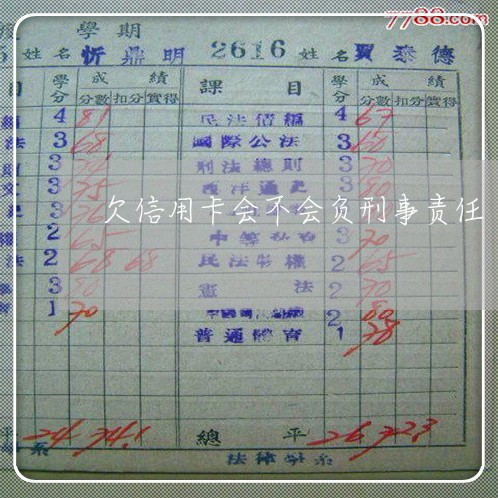 7788.com
學期
5 姓名 忻鼎明 2616 姓名 賈泰德
目 學分 成績 課目 學分 成績
分數 扣分 實得 分數 扣分 實得
4 81 民法債編 4 67
法 3 68 國際公法 3 60
3 刑法總則 3 70
3 75 西洋通史 3 80
欠信用卡会不会负刑事责任
2 65 3 70
法 2 68 68 民法物權 2 65
3 80 憲法 2 70
1 70 2 80
普通體育 1 78
平 24 74.1 總平 26 72.3
系 法律學系